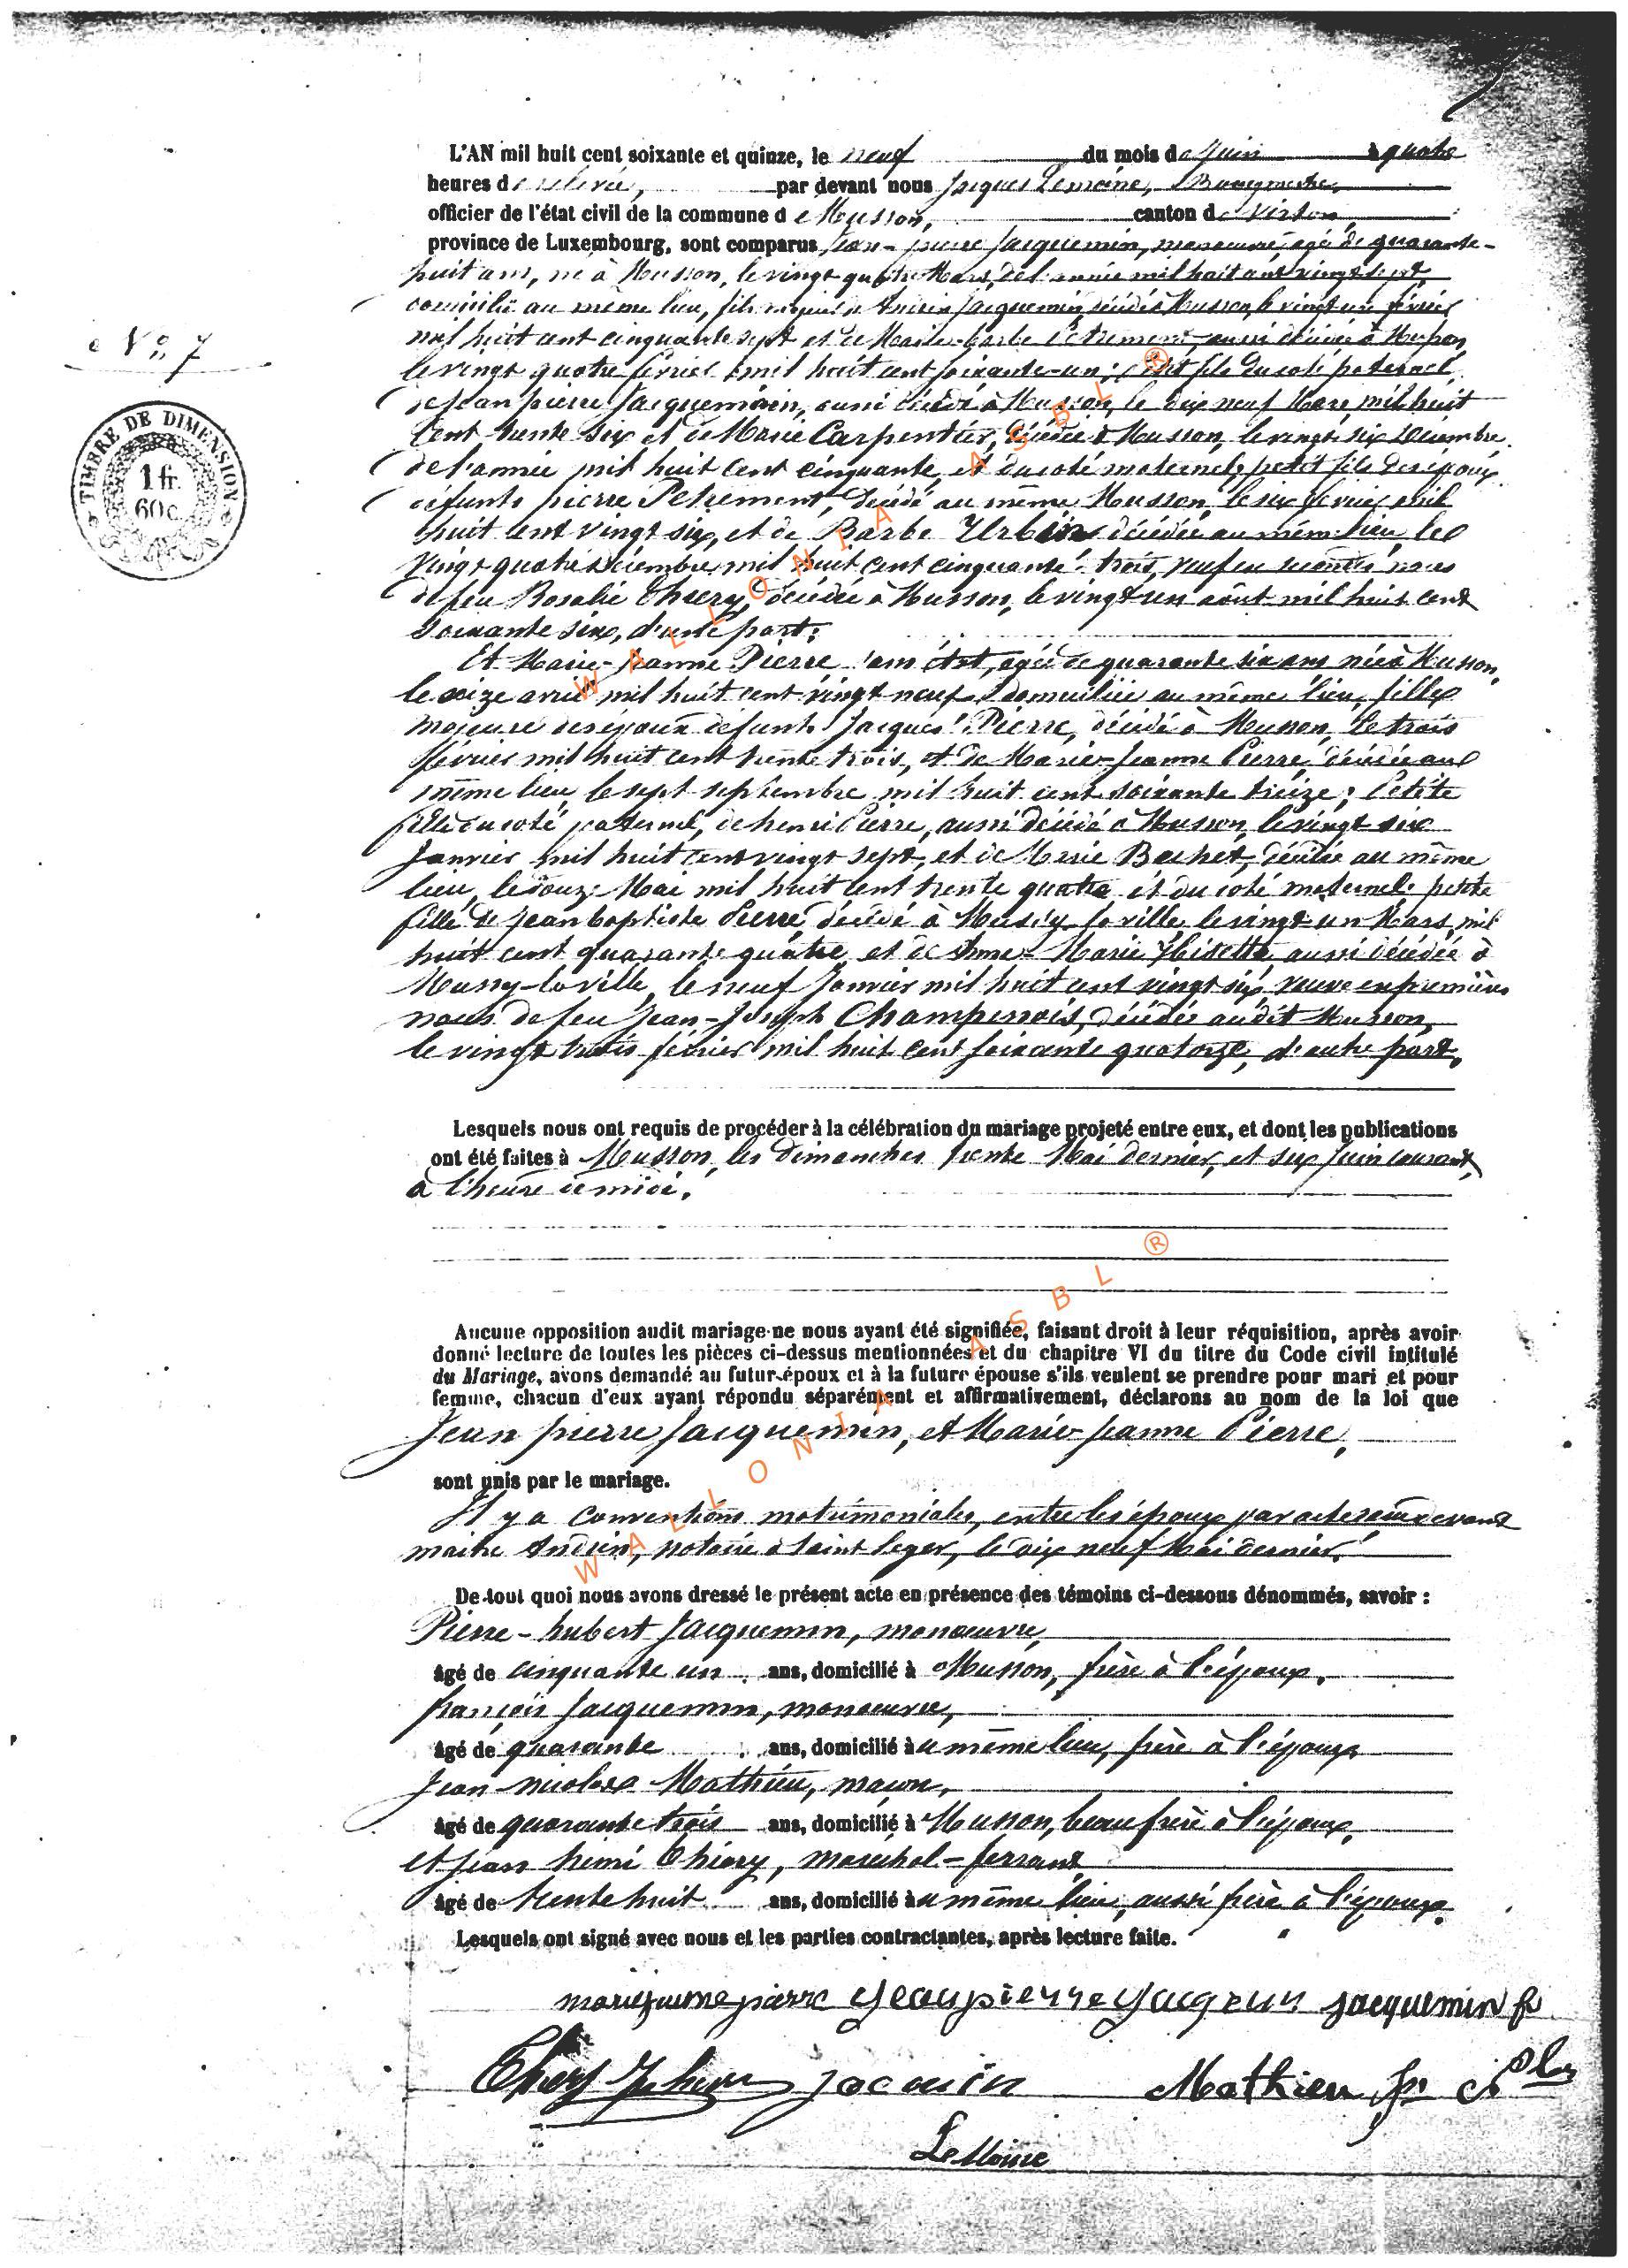 L'AN mil huit cent soixante et quinze, le neuf du mois de Juin à quatre
heures de relevée, par devant nous Jacques Lemoine, Bourgmestre,
officier de l'état civil de la commune de Musson, canton de Virton,
province de Luxembourg, sont comparus Jean-pierre Jacquemin, manoeuvre, agé de quarante-
huit ans, né à Musson, le vingt quatre Mars, de l'année mil huit cent vingt sept,
domicilié au même lieu, fils majeur de Jacquemin, décédé à Musson, le vingt un février
mil huit cent cinquante sept et de Marie-barbe Petrement, aussi décédée à Musson,
le vingt quatre février mil huit cent soixante-un; petit fils du coté paternel,
de Jean pierre Jacquemin, aussi décédé à Musson, le dix neuf Mars mil huit
cent trente six et de Marie Carpentier, décédée à Musson, le vingt six Décembre
de l'année mil huit cent cinquante, et du coté maternel, petit fils des époux
défunts pierre Petrement, décédé au même Musson, le six février mil
huit cent vingt six, et de Barbe Urbin décédée au même lieu, le
vingt quatre décembre mil huit cent cinquante-trois, veuf en secondes noces
de feu Rosalie Thiery, décédée à Musson, le vingt un août mil huit cent
soixante six, d'une part;
Et Marie-Jeanne Pierre sans état, agée de quarante six ans née à Musson,
le seize avril mil huit cent vingt neuf, domiciliée au même lieu, fille
majeure des époux défunts Jacques Pierre, décédé à Musson, le trois
février mil huit cent trente trois, et de Marie-Jeanne Pierre, décédée au
même lieu, le sept septembre mil huit cent soixante treize; Petite
fille du coté paternel, de henri Pierre, aussi décédé à Musson, le vingt six
Janvier mil huit cent vingt sept, et de Marie Bechet, décédée au même
lieu, le douze Mai mil huit cent trente quatre et du coté maternel petite
fille de Jean baptiste Pierre, décédé à Mussy-la-ville, le vingt un Mars mil
huit cent quarante quatre et de Anne-Marie aussi décédée à
Mussy-la ville, le neuf Janvier mil huit cent vingt six, veuve en premières
noces de feu Jean-Joseph Champenois, décédé audit Musson,
le vingt trois février mil huit cent soixante quatorze, d'autre part,
N° 7
TIMBRE DE DIMENSION
1 fr.
60 c.
Lesquels nous ont requis de procéder à la célébration du mariage projeté entre eux, et dont les publications
ont été faites à Musson, les Dimanches trente Mai dernier, et six Juin courant,
à l'heure de midi.
Aucune opposition audit mariage ne nous ayant été signifiée, faisant droit à leur réquisition, après avoir
donné lecture de toutes les pièces ci-dessus mentionnées et du chapitre VI du titre du Code civil intitulé
du Mariage, avons demandé au futur époux et à la future épouse s'ils veulent se prendre pour mari et pour
femme, chacun d'eux ayant répondu séparément et affirmativement, déclarons au nom de la loi que
Jean pierre Jacquemin, et Marie-Jeanne Pierre,
sont unis par le mariage.
Il y a conventions matrimoniales, entre les époux par acte reçu devant
maitre Andrin, notaire à Saint Leger, le dix neuf Mai dernier.
De tout quoi nous avons dressé le présent acte en présence des témoins ci-dessous dénommés, savoir :
Pierre-hubert Jacquemin, manoeuvre,
âgé de cinquante un ans, domicilié à Musson, frère à l'époux.
françois Jacquemin, manoeuvre,
âgé de quarante ans, domicilié au même lieu, frère à l'époux
Jean-nicolas Mathieu, maçon,
âgé de quarante trois ans, domicilié à Musson, beau frère à l'époux,
et Jean henri Thiery, maréchal-ferrant
âgé de trente huit ans, domicilié au même lieu, aussi frère à l'époux.
Lesquels ont signé avec nous et les parties contractantes, après lecture faite.
marie jeanne pierre Jeanpierre Jacqemin jacquemin fr
Thiery Jn henri Jacquin Mathieu Jn Nlas
LeMoine
WALLONIA ASBL ®
WALLONIA ASBL ®